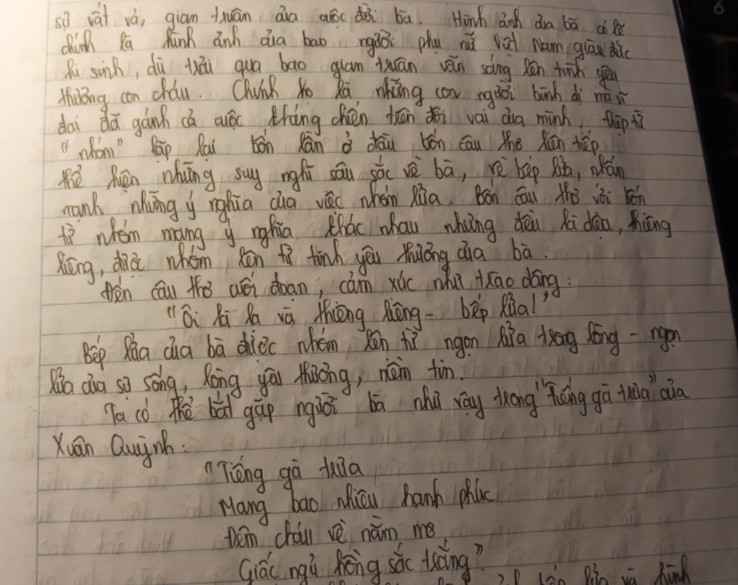 sự vất vả, gian truân của cuộc đời bà. Hình ảnh của bà
chính là hình ảnh của bao người phụ nữ Việt Nam giàu đức
hi sinh, dù trải qua bao gian truân vẫn sáng lên tình yêu
thương con cháu. Chính họ là những con người bình dị mà vĩ
đại đã gánh cả cuộc kháng chiến trên đôi vai của mình. Điệp từ
"nhóm" lặp lại bốn lần ở đầu bốn câu thơ liên tiếp
thể hiện những suy nghĩ sâu sắc về bà, về bếp lửa, nhấn
mạnh những ý nghĩa của việc nhóm lửa. Bốn câu thơ với bốn
từ nhóm mang ý nghĩa khác nhau nhưng đều kì diệu, thiêng
liêng, được nhóm lên từ tình yêu thương của bà.
Đến câu thơ cuối đoạn, cảm xúc như trào dâng:
"Ôi kì lạ và thiêng liêng - bếp lửa!"
Bếp lửa của bà được nhóm lên từ ngọn lửa trong lòng - ngọn
lửa của sự sống, lòng yêu thương, niềm tin.
Ta có thể bắt gặp người bà như vậy trong "Tiếng gà trưa" của
Xuân Quỳnh:
"Tiếng gà trưa
Mang bao nhiêu hạnh phúc
Đêm cháu về nằm mơ
Giấc ngủ hồng sắc trứng"